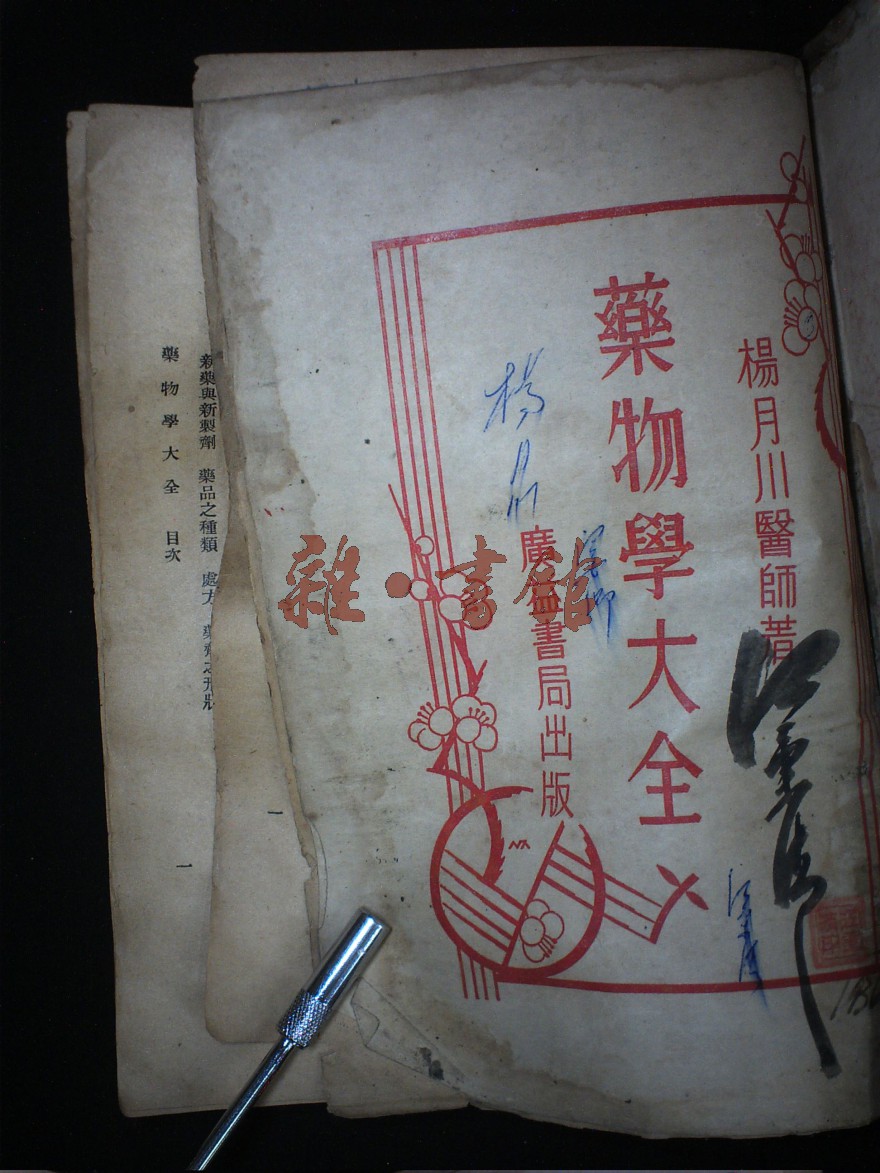 楊月川醫師著
藥物學大全
廣益書局出版
楊月川
雜·書館
新藥與新製劑 藥品之種類 處方 藥劑之形狀
一
藥物學大全 目次
一